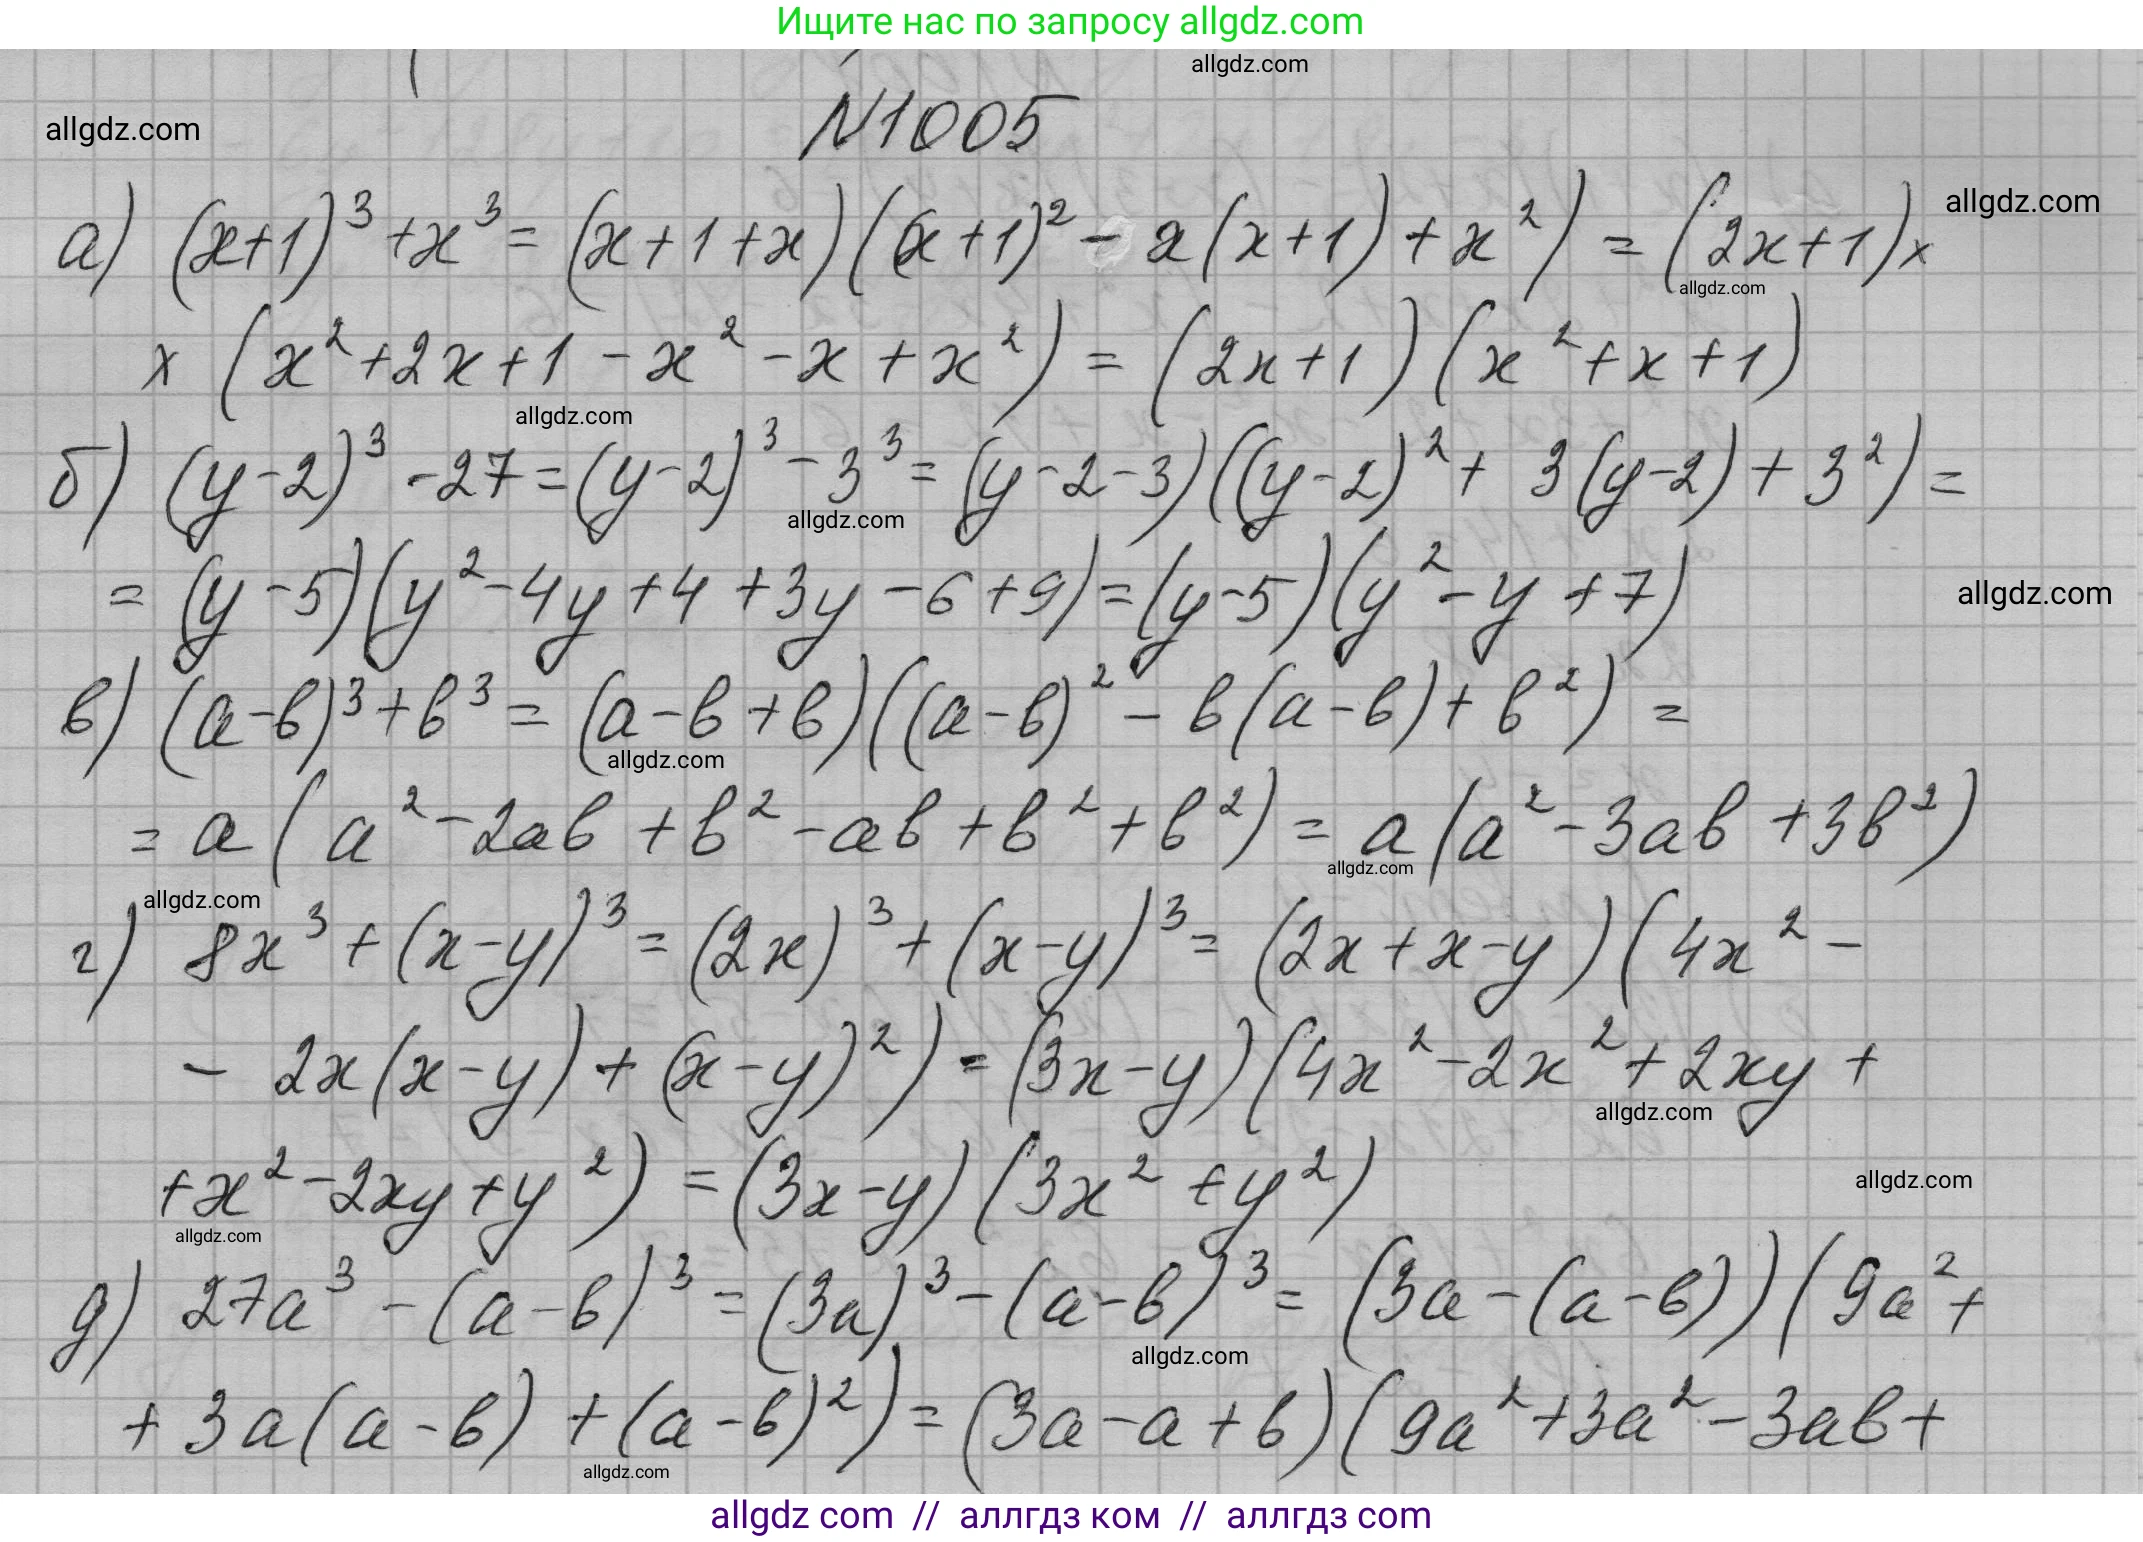 Ищите нас по запросу allgdz.com
allgdz.com
allgdz.com
N1005
а) (x+1)³ + x³ = (x+1+x)((x+1)² - x(x+1) + x²) = (2x+1)×
allgdz.com
allgdz.com
× (x² + 2x + 1 - x² - x + x²) = (2x+1)(x² + x + 1)
allgdz.com
б) (y-2)³ - 27 = (y-2)³ - 3³ = (y-2-3)((y-2)² + 3(y-2) + 3²) =
allgdz.com
= (y-5)(y² - 4y + 4 + 3y - 6 + 9) = (y-5)(y² - y + 7)
allgdz.com
в) (a-b)³ + b³ = (a-b+b)((a-b)² - b(a-b) + b²) =
allgdz.com
= a(a² - 2ab + b² - ab + b² + b²) = a(a² - 3ab + 3b²)
allgdz.com
allgdz.com
г) 8x³ + (x-y)³ = (2x)³ + (x-y)³ = (2x+x-y)(4x² -
- 2x(x-y) + (x-y)²) = (3x-y)(4x² - 2x² + 2xy +
allgdz.com
+ x² - 2xy + y²) = (3x-y)(3x² + y²)
allgdz.com
allgdz.com
д) 27a³ - (a-b)³ = (3a)³ - (a-b)³ = (3a-(a-b))(9a² +
allgdz.com
+ 3a(a-b) + (a-b)²) = (3a-a+b)(9a² + 3a² - 3ab +
allgdz.com
allgdz com // аллгдз ком // аллгдз com